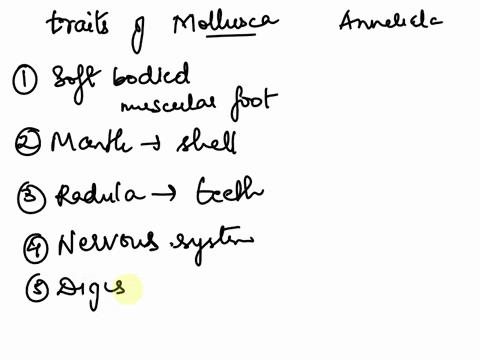 traits of Mollusca Annelida
① Soft bodied
muscular foot
② Mantle → shell
③ Radula → teeth
④ Nervous system
⑤ Diges